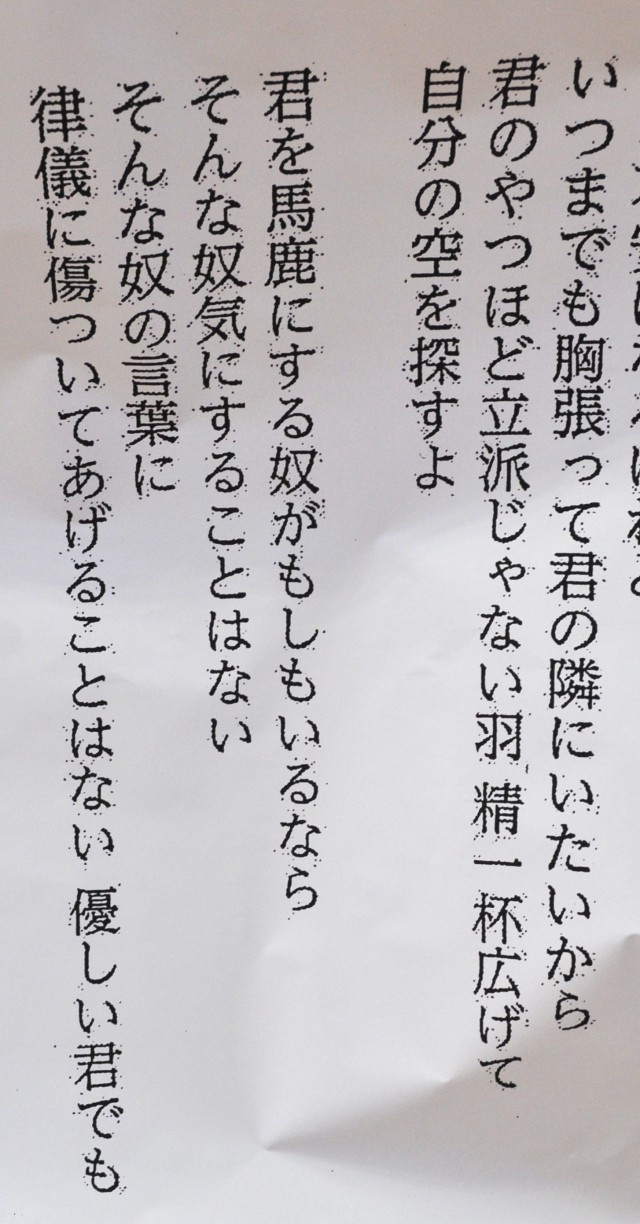 いつまでも胸張って君の隣にいたいから
君のやつほど立派じゃない羽 精一杯広げて
自分の空を探すよ
君を馬鹿にする奴がもしもいるなら
そんな奴気にすることはない
そんな奴の言葉に
律儀に傷ついてあげることはない 優しい君でも